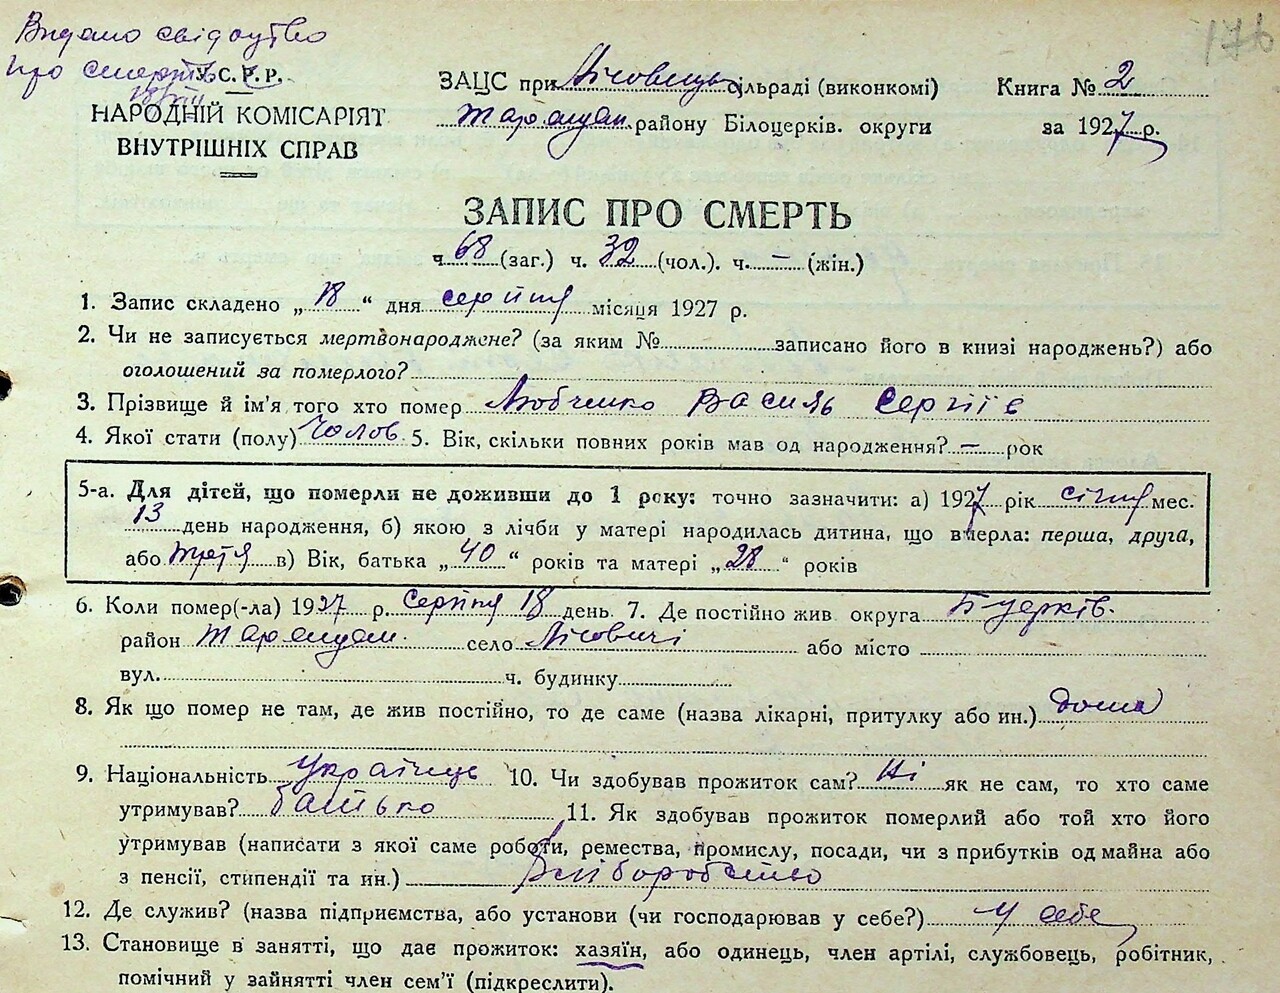 Видано свідоцтво
про смерть
176
У.С.Р.Р.
НАРОДНІЙ КОМІСАРІЯТ
ВНУТРІШНІХ СПРАВ
ЗАЦС при Лісовицьк сільраді (виконкомі)
Таращан. району Білоцерків. округи
Книга № 2
за 1927 р.
ЗАПИС ПРО СМЕРТЬ
ч. 68 (заг.) ч. 32 (чол.). ч. – (жін.)
1. Запис складено „ 18 “ дня серпня місяця 1927 р.
2. Чи не записується мертвонароджене? (за яким № записано його в книзі народжень?) або
оголошений за померлого?
3. Прізвище й ім'я того хто помер Любченко Василь Сергіїв
4. Якої стати (полу) Чолов. 5. Вік, скільки повних років мав од народження? – рок
5-а. Для дітей, що померли не доживши до 1 року: точно зазначити: а) 1927 рік січня мес.
13 день народження, б) якою з лічби у матері народилась дитина, що вмерла: перша, друга,
або третя в) Вік, батька „ 40 “ років та матері „ 28 “ років
6. Коли помер(-ла) 1927 р. серпня 18 день. 7. Де постійно жив округа Б-церків.
район Таращан. село Лісовичі або місто
вул. ч. будинку
8. Як що помер не там, де жив постійно, то де саме (назва лікарні, притулку або ин.) дома
9. Національність українець 10. Чи здобував прожиток сам? Ні як не сам, то хто саме
утримував? батько 11. Як здобував прожиток померлий або той хто його
утримував (написати з якої саме роботи, ремества, промислу, посади, чи з прибутків од майна або
з пенсії, стипендії та ин.) хліборобство
12. Де служив? (назва підприємства, або установи (чи господарював у себе?) у себе
13. Становище в занятті, що дає прожиток: хазяїн, або одинець, член артілі, службовець, робітник,
помічний у зайнятті член сем'ї (підкреслити).